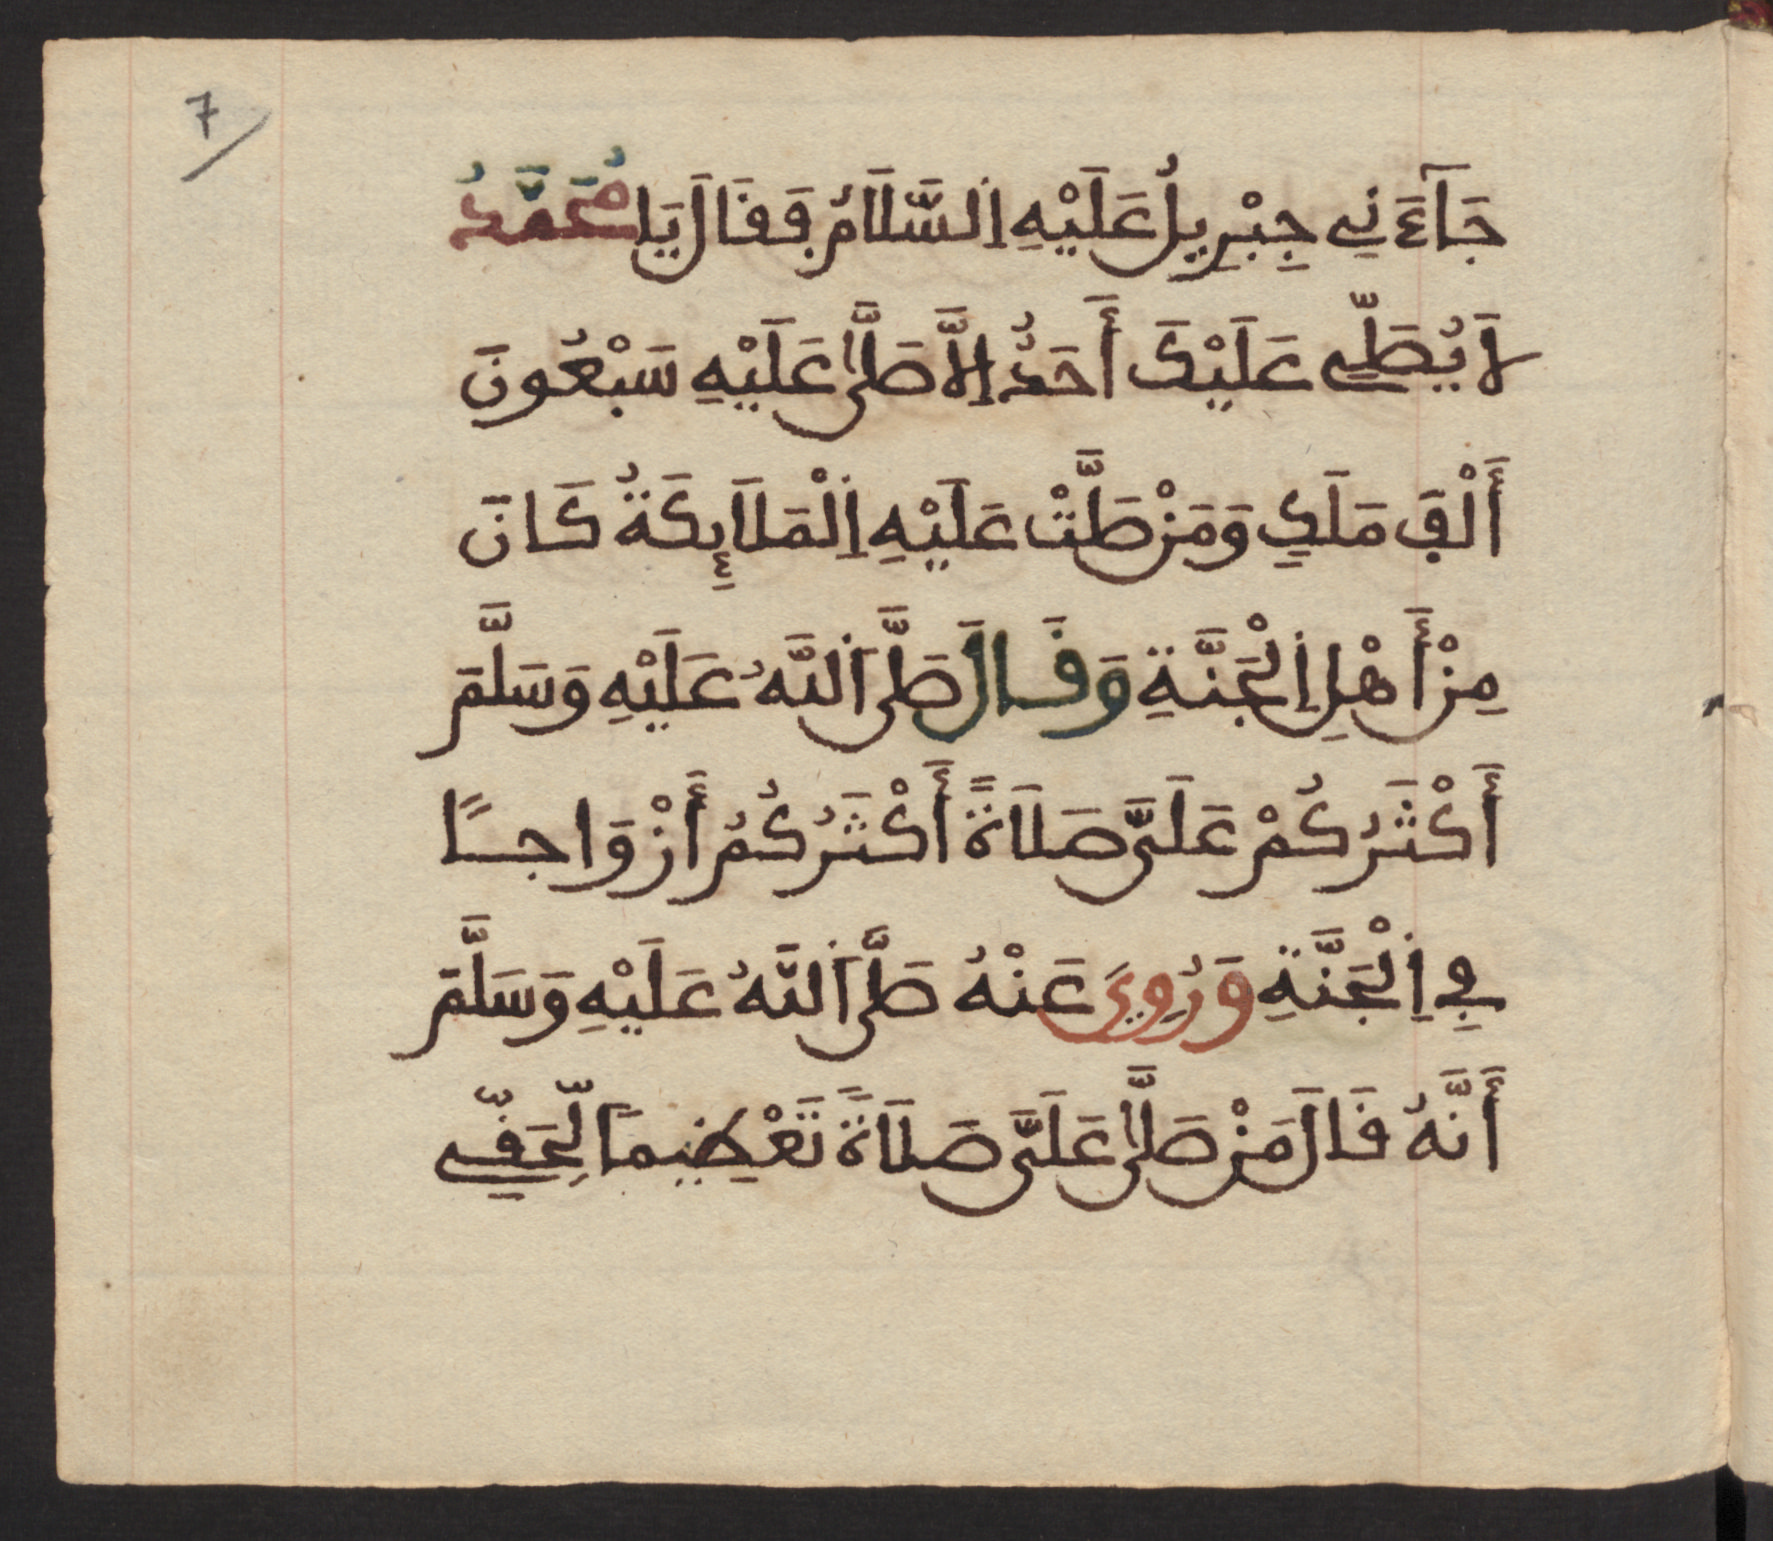 7
جَآءَنِے جِبْرِيلُ عَلَيْهِ اِ۬لسَّلَامُ فَقَالَ يَا مُحَمَّدُ
لَا يُصَلِّے عَلَيْكَ أَحَدٌ اِلَّا صَلَّىٰ عَلَيْهِ سَبْعُونَ
أَلْفَ مَلَكٍ وَمَنْ صَلَّتْ عَلَيْهِ اِ۬لْمَلَآئِكَةُ كَانَ
مِنْ أَهْلِ اِ۬لْجَنَّةِ وَقَالَ صَلَّى اَ۬للَّهُ عَلَيْهِ وَسَلَّمَ
أَكْثَرُكُمْ عَلَىَّ صَلَاةً أَكْثَرُكُمُ أَزْوَاجًا
فِے اِ۬لْجَنَّةِ وَرُوِيَ عَنْهُ صَلَّى اَ۬للَّهُ عَلَيْهِ وَسَلَّمَ
أَنَّهُ قَالَ مَنْ صَلَّىٰ عَلَىَّ صَلَاةً تَعْظِيمًا لِّحَقِّے